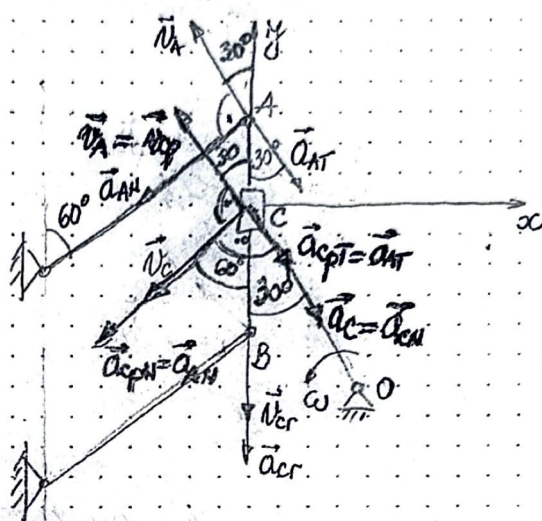 v⃗_A
30°
y
A
v⃗_A = v⃗_cp
30
30°
a⃗_AT
a⃗_AN
60°
C
x
v⃗_C
60°
a⃗_cpT = a⃗_AT
30°
a⃗_C = a⃗_CN
a⃗_cpN = a⃗_AN
B
ω
O
v⃗_cr
a⃗_cr